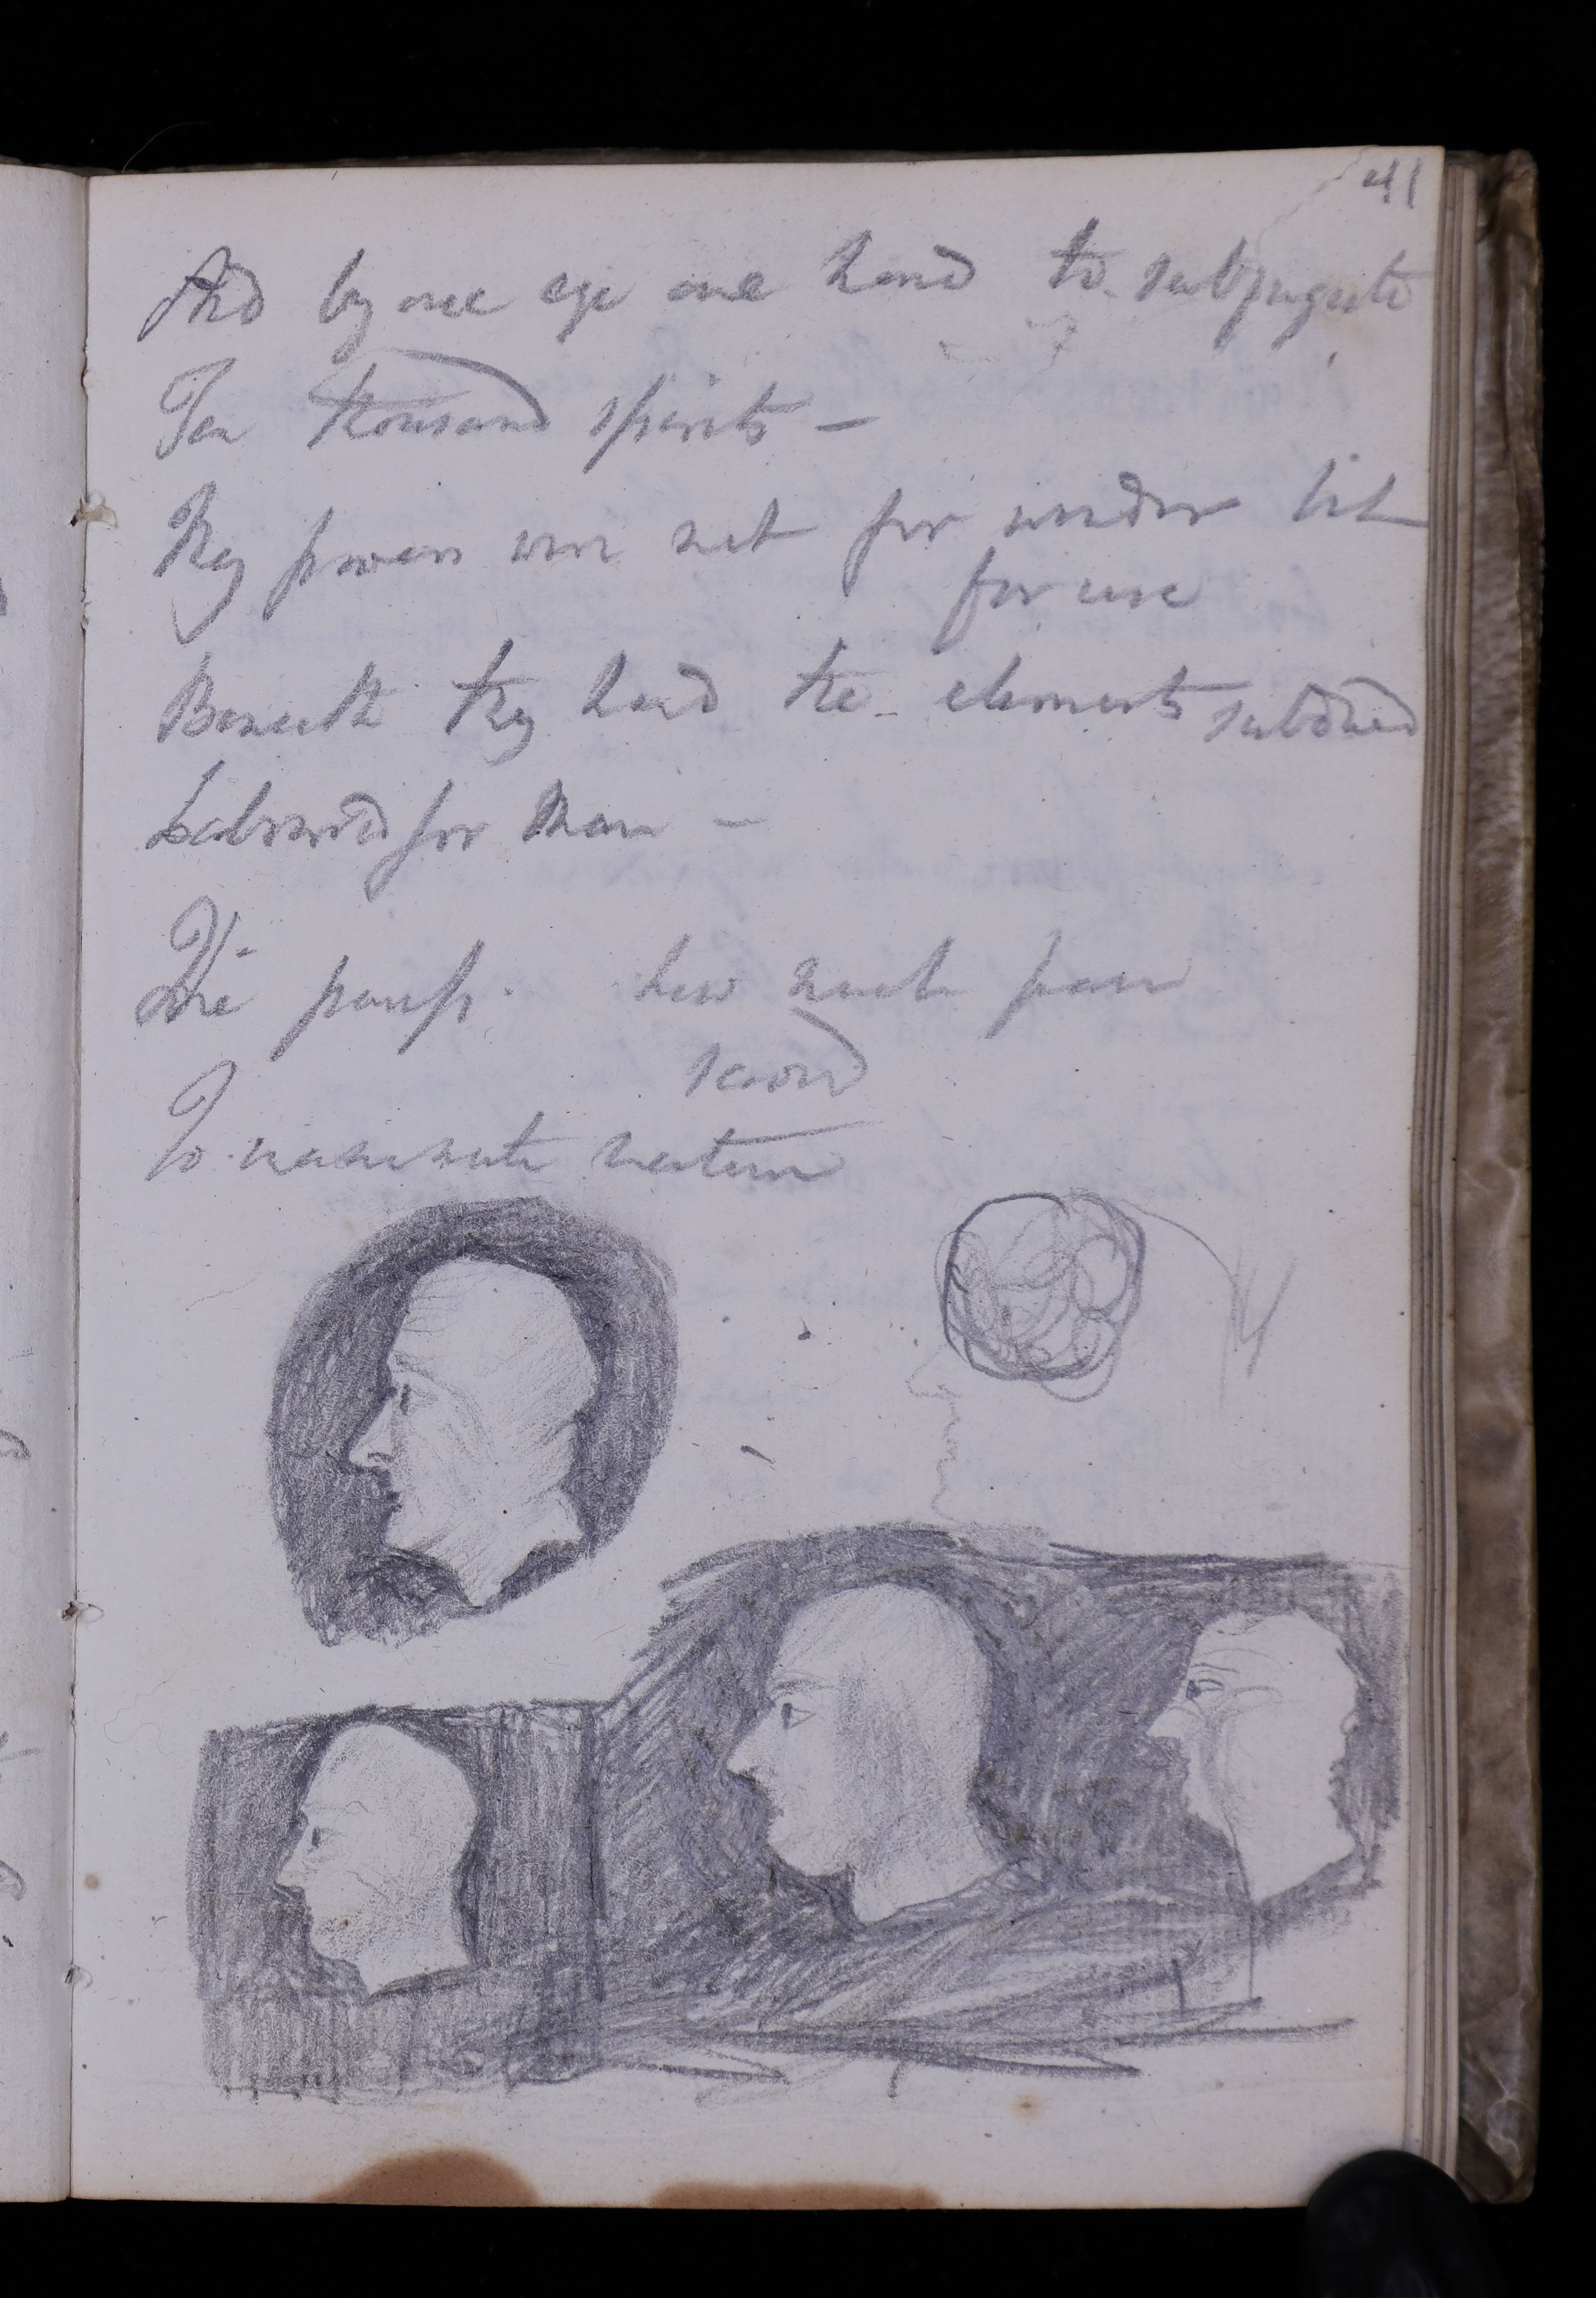 41
And by one eye one hand to subjugate
Ten thousand spirits —
Thy powers were not for wonder but
for use
Beneath thy hand the elements subdued
Labourd for Man —
how much
second
To nature